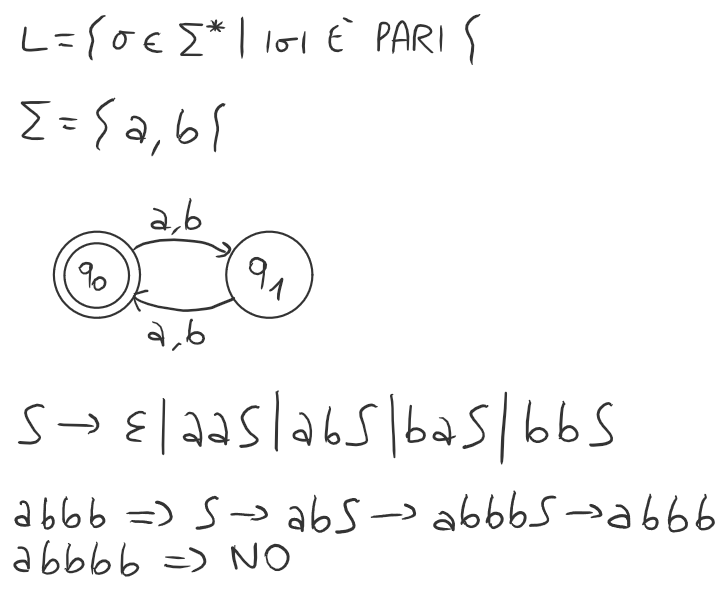 L={σ ∈ Σ* | |σ| È PARI {
Σ={a,b{
a,b
q0
q1
a,b
S → ε|aaS|abS|baS|bbS
abbb => S → abS → abbbS → abbb
abbbb => NO